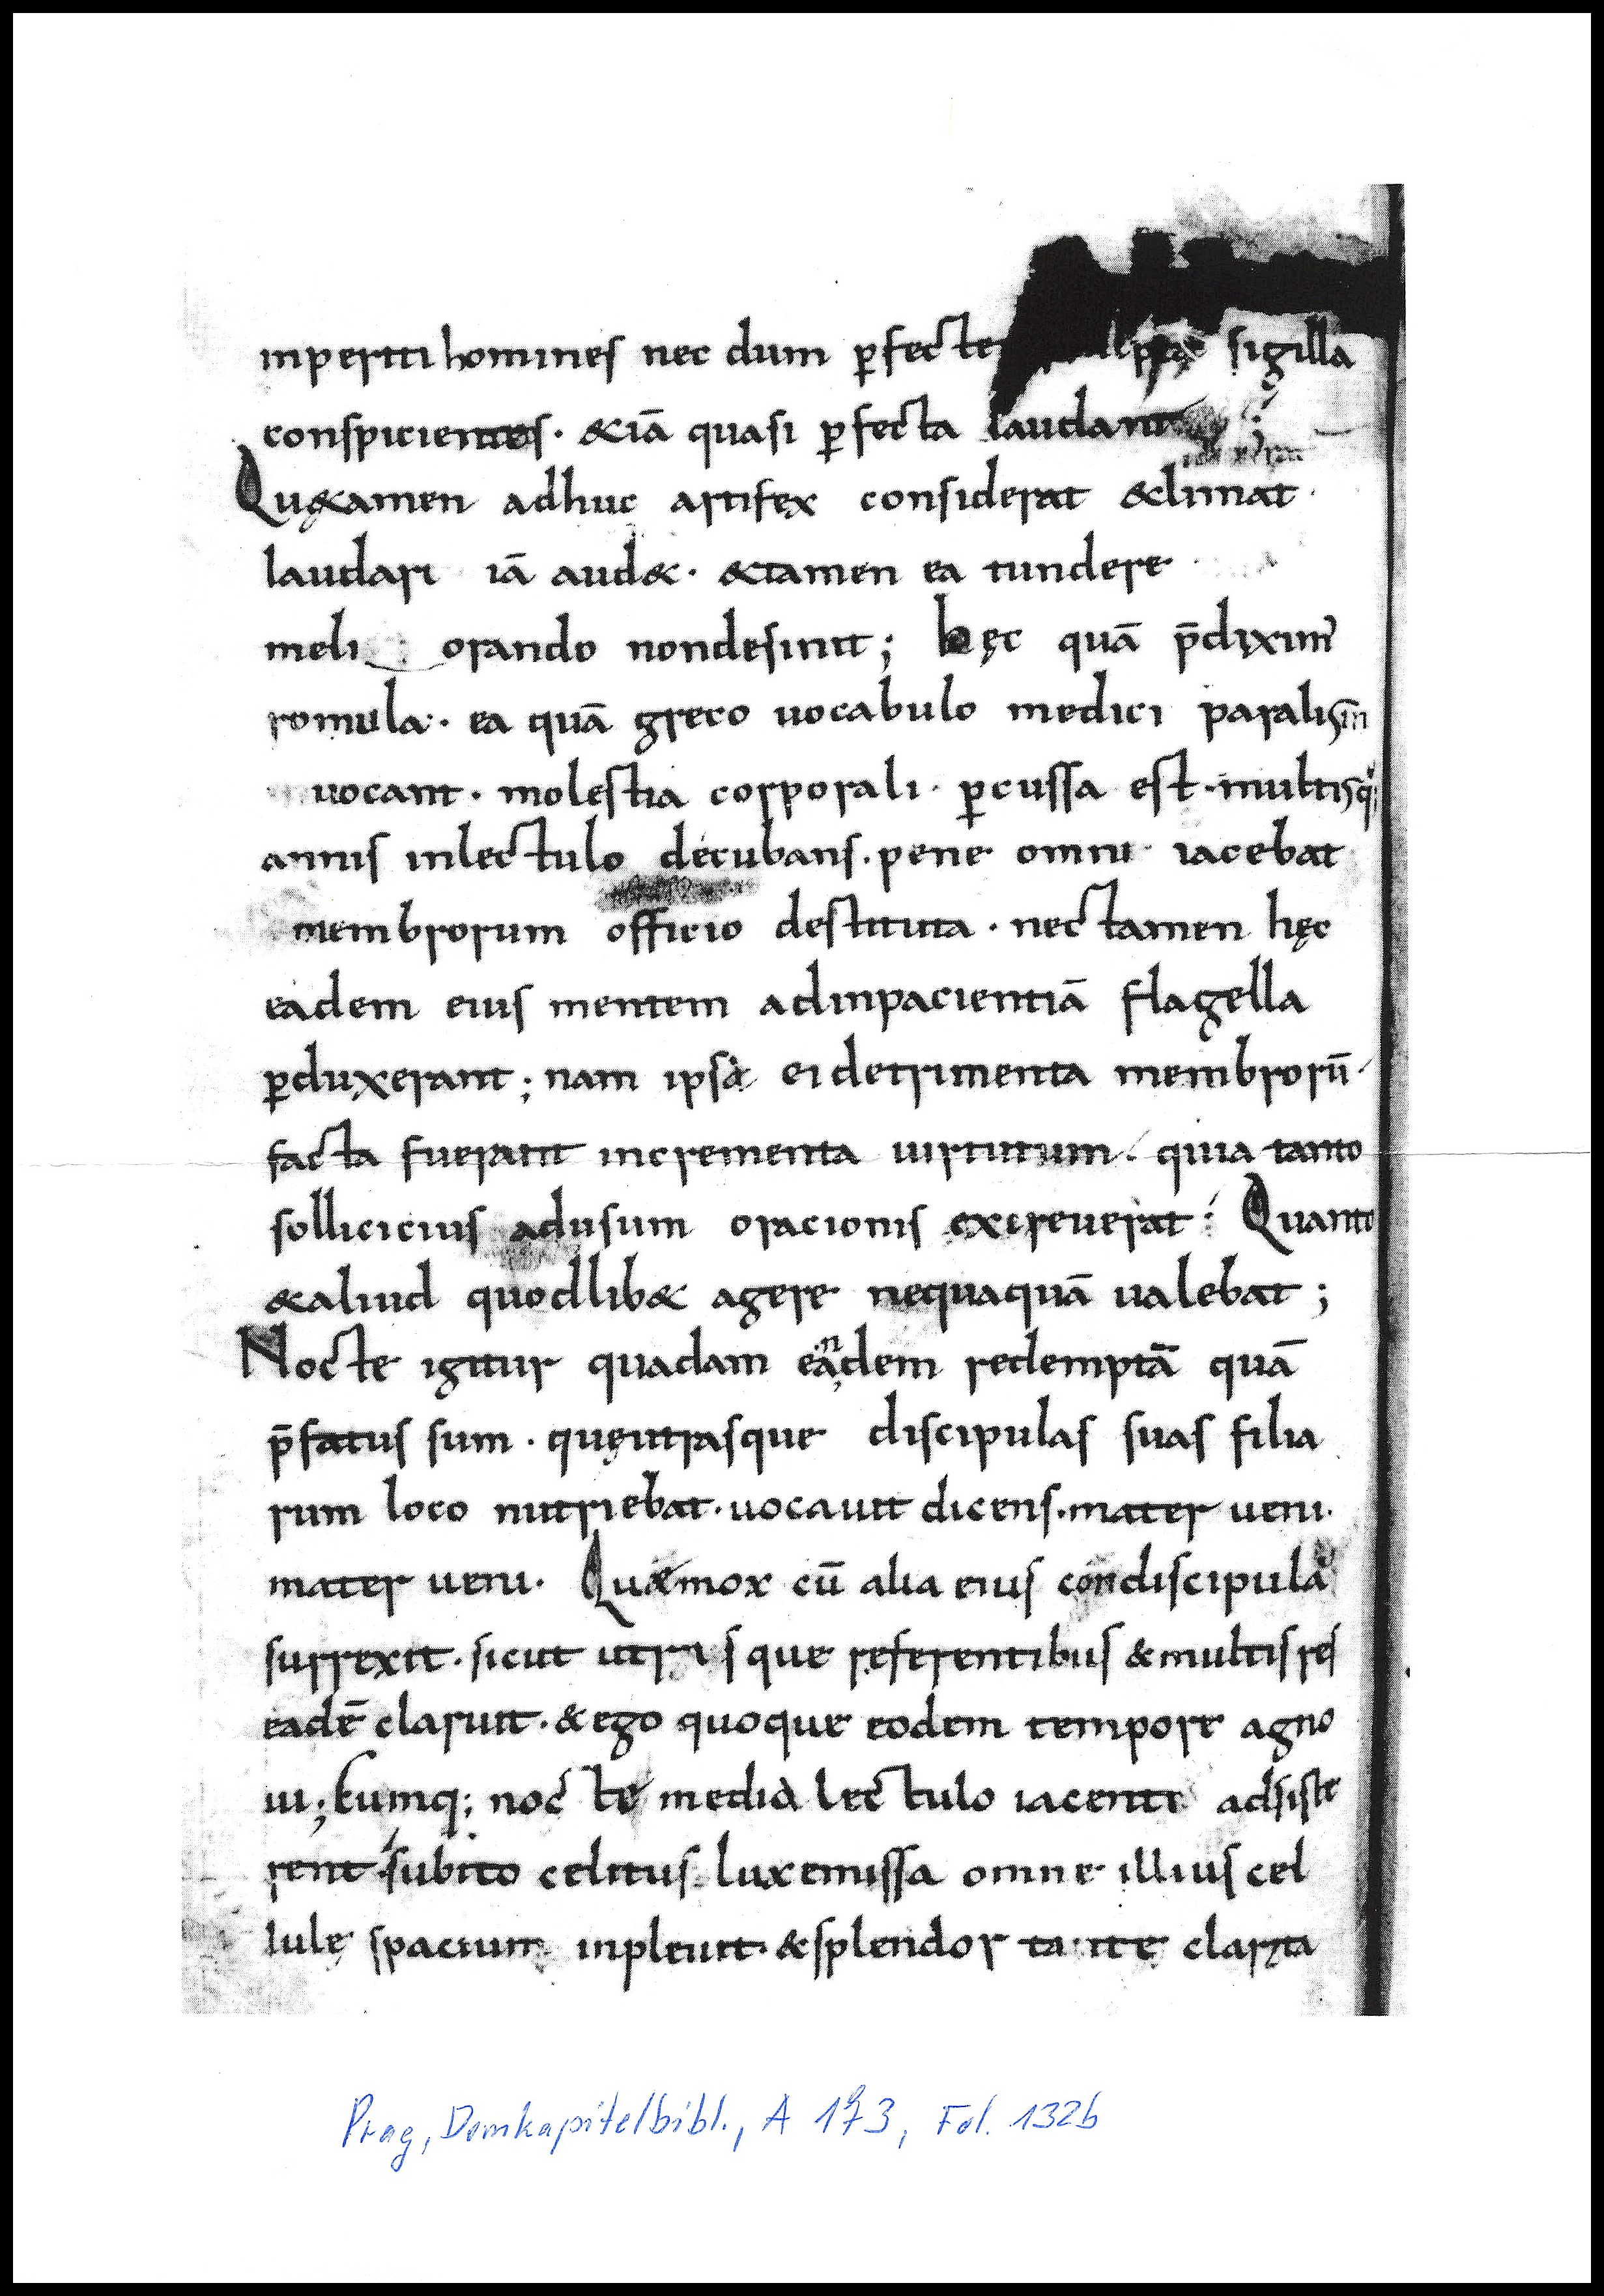 inperiti homines nec dum ꝑfecte sigilla
conspicientes · &iā quasi ꝑfecta laudant
Qu&amen adhuc artifex considerat &limat ·
laudari iā aud& · &tamen ea tundere
meli orando nondesinit ; hęc quā p̄diximꝰ
romula · ea quā greco uocabulo medici paralisīn
uocant · molestia corporali · ꝑcussa est · multisq;
annis inlectulo decubans · pene omni iacebat
membrorum officio destituta · nectamen hęc
eadem eius mentem adinpacientiā flagella
ꝑduxerant ; nam ipsa ei detrimenta membrorū ·
facta fuerant incrementa uirtutum · quia tanto
sollicicius adusum oracionis excreuerat · Quanto
&aliud quodlib& agere nequaquā ualebat ;
Nocte igitur quadam eandem redemptā quā
p̄fatus sum · quęutrasque discipulas suas filia
rum loco nutriebat · uocauit dicens · mater ueni ·
mater ueni · Quæmox cū alia eius condiscipula
surrexit · sicut utrisque referentibus & multis res
eadē claruit · & ego quoque eodem tempore agno
ui ; Cumq; nocte media lectulo iacenti adsiste
rent · subito celitus lux emissa omne illius cel
lulę spacium inpleuit · &splendor tantę clarita
Prag, Domkapitelbibl., A 173, Fol. 132b